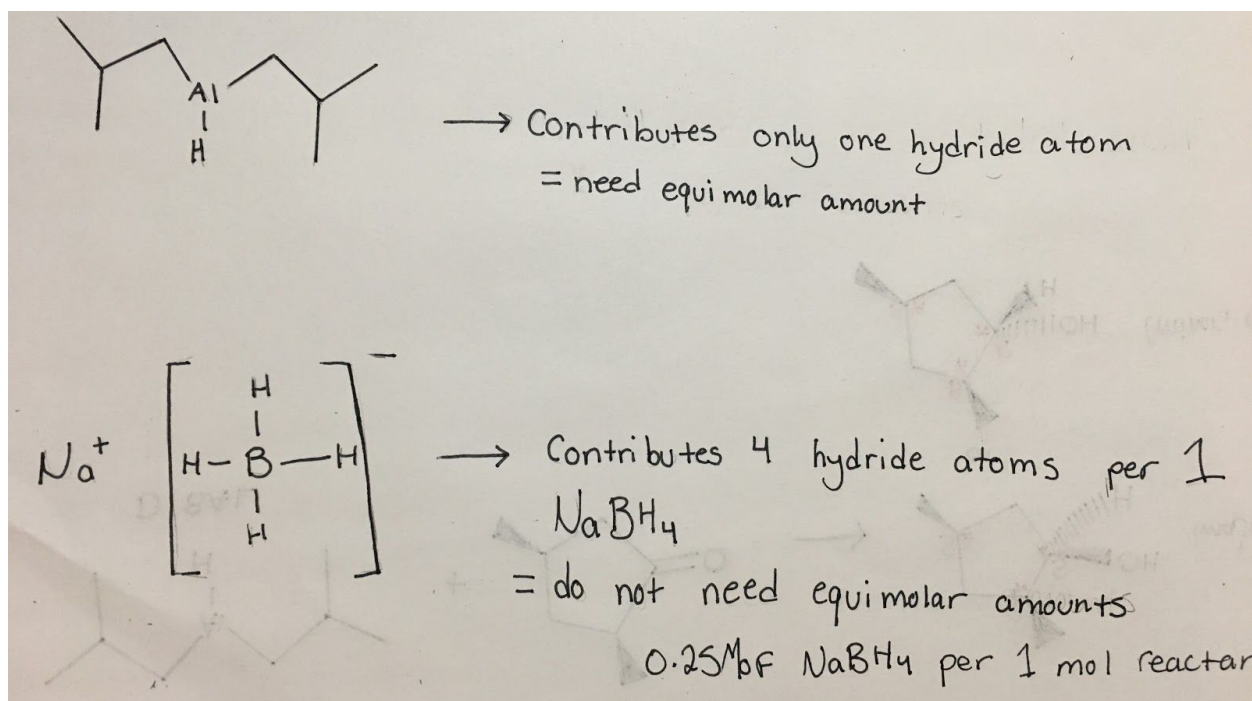 Al
H
→ Contributes only one hydride atom
= need equimolar amount
H
Na+ [H-B-H]-
H
→ Contributes 4 hydride atoms per 1
NaBH4
= do not need equimolar amounts
0.25M of NaBH4 per 1 mol reactan